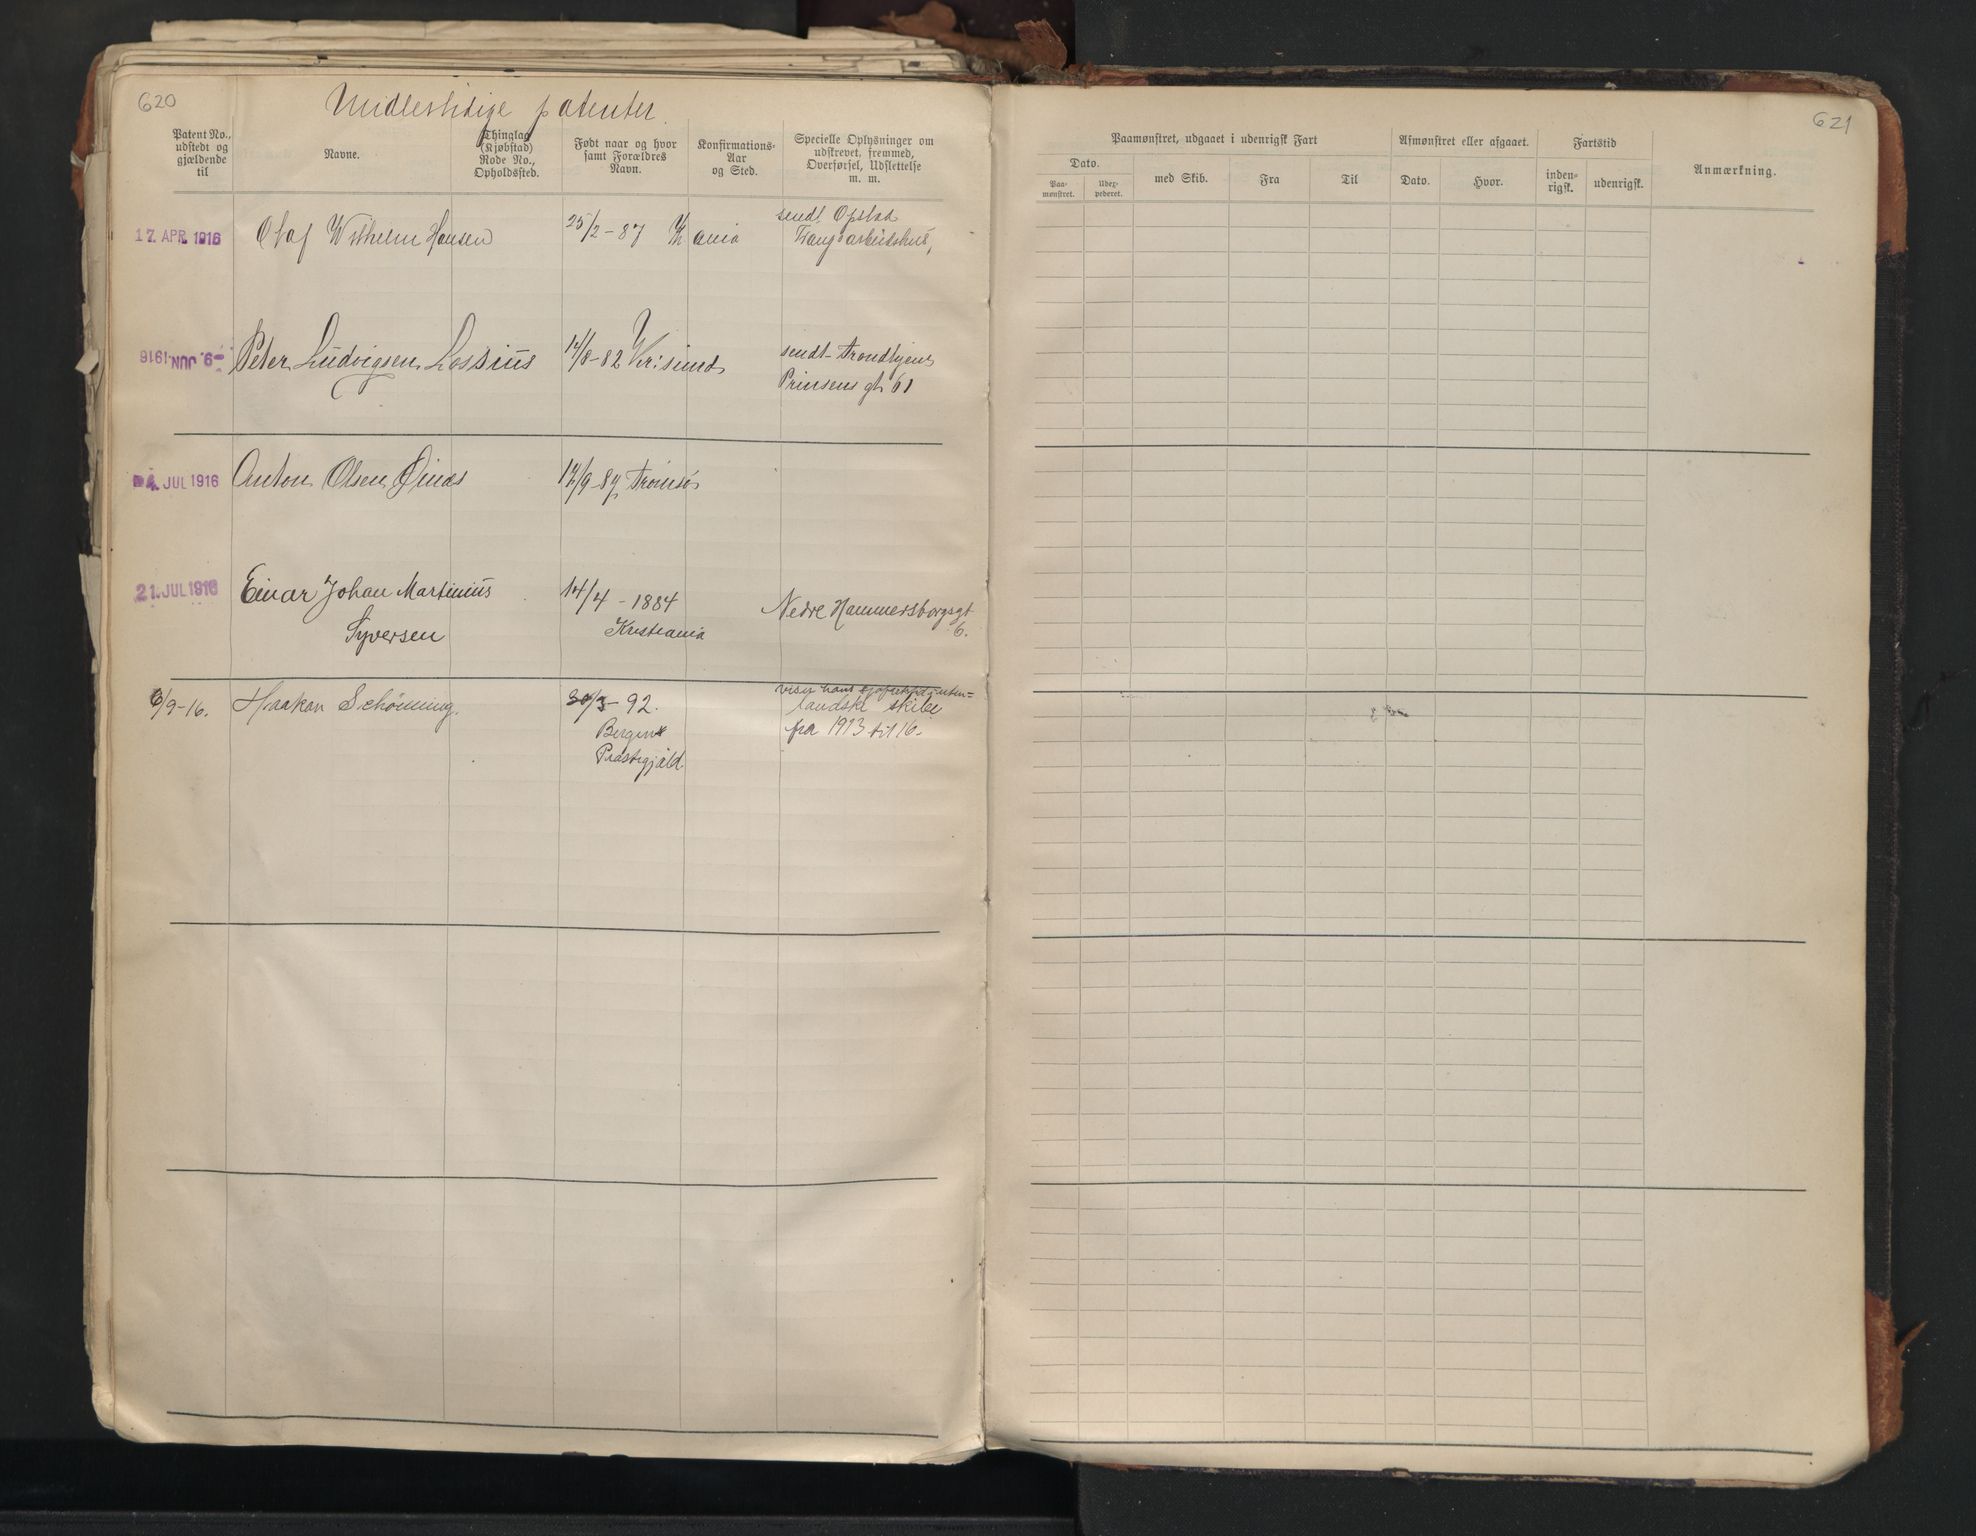 620
Midlertidige patenter.
Patent No., udstedt og gjældende til
Navne.
Thinglag (Kjøbstad) Rode No., Opholdssted.
Født naar og hvor samt Forældres Navn.
Konfirmations-Aar og Sted.
Specielle Oplysninger om udskrevet, fremmed, Overførsel, Udslettelse m. m.
17. APR. 1916
Olaf Wilhelm Hansen
25/2-87 Kr ania
sendt Opstad
Tvangsarbeidshus,
-9. JUN. 1916
Peter Ludvigsen Lossius
14/8-82 Kr:sund
sendt Trondhjem
Prinsens gt 61
JUL 1916
Anton Olsen
17/9-87 Tromsø
21. JUL 1916
Einar Johan Martinius
Syversen
14/4-1884
Kristiania
Nedre Hammersborgsgt
6.
6/9-16.
Haakon Schønning.
30/3-92.
Bergen
Præstegjæld
viser hans uten=
landske skibe
fra 1913 til 16.
621
Paamønstret, udgaaet i udenrigsk Fart
Dato.
Paa-mønstret.
Udex-pederet.
med Skib.
Fra
Til
Afmønstret eller afgaaet.
Dato.
Hvor.
Fartstid
inden-rigsk.
udenrigsk.
Anmærkning.